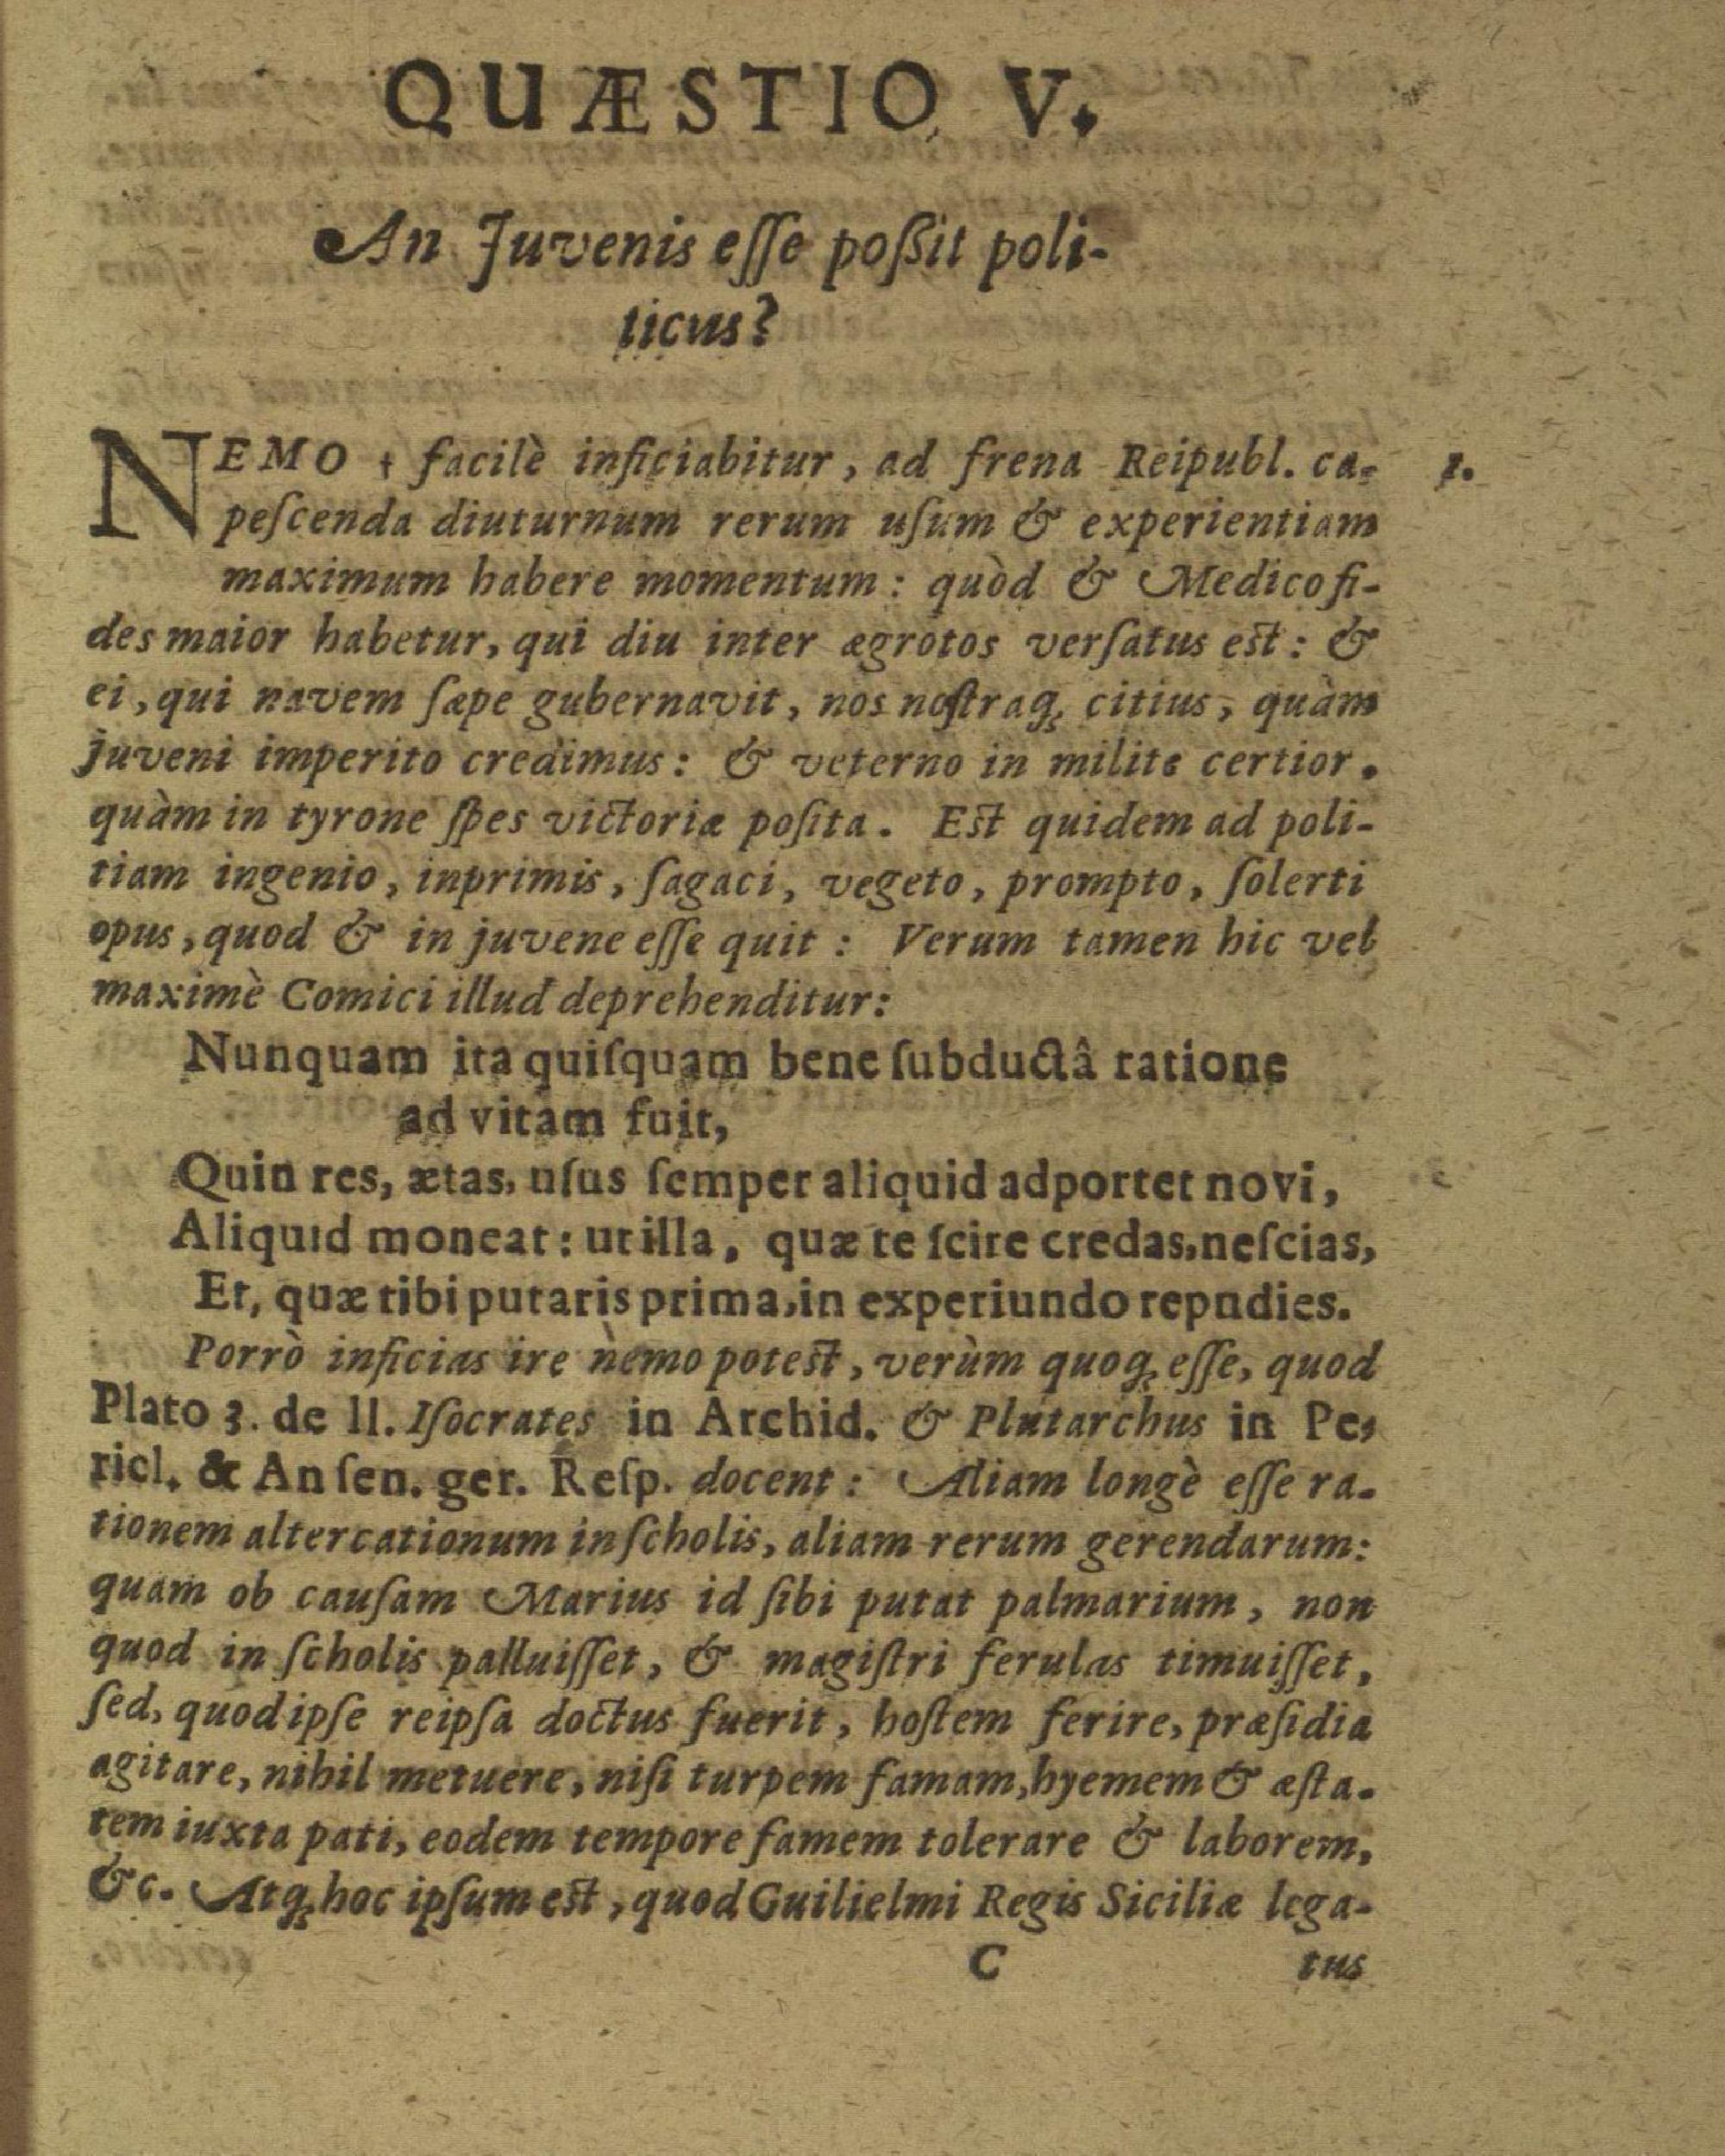 QUÆSTIO V.
An Juvenis eſſe poßit poli-
ticus?
NEMO † facilè inficiabitur, ad frena Reipubl. ca- 1.
peſcenda diuturnum rerum uſum & experientiam
maximum habere momentum: quòd & Medico fi-
des maior habetur, qui diu inter ægrotos verſatus est: &
ei, qui navem ſæpe gubernavit, nos noſtraq; citius, quàm
juveni imperito credimus: & veterno in milite certior.
quàm in tyrone ſpes victoriæ poſita. Est quidem ad poli-
tiam ingenio, inprimis, ſagaci, vegeto, prompto, ſolerti
opus, quod & in juvene eſſe quit: Verum tamen hic vel
maximè Comici illud deprehenditur:
Nunquam ita quiſquam bene ſubductâ ratione
ad vitam fuit,
Quin res, ætas, uſus ſemper aliquid adportet novi,
Aliquid moneat: ut illa, quæ te ſcire credas, neſcias,
Et, quæ tibi putaris prima, in experiundo repndies.
Porrò inficias ire nèmo potest, verùm quoq; eſſe, quod
Plato 3. de ll. Iſocrates in Archid. & Plutarchus in Pe-
ricl. & An ſen. ger. Reſp. docent: Aliam longè eſſe ra-
tionem altercationum in ſcholis, aliam rerum gerendarum:
quam ob cauſam Marius id ſibi putat palmarium, non
quod in ſcholis palluiſſet, & magiſtri ferulas timuiſſet,
ſed, quod ipſe reipſa doctus fuerit, hoſtem ferire, præſidia
agitare, nihil metuere, niſi turpem famam, hyemem & æſta-
tem iuxta pati, eodem tempore famem tolerare & laborem,
&c. Atq; hoc ipſum est, quod Guilielmi Regis Siciliæ lega-
C tus